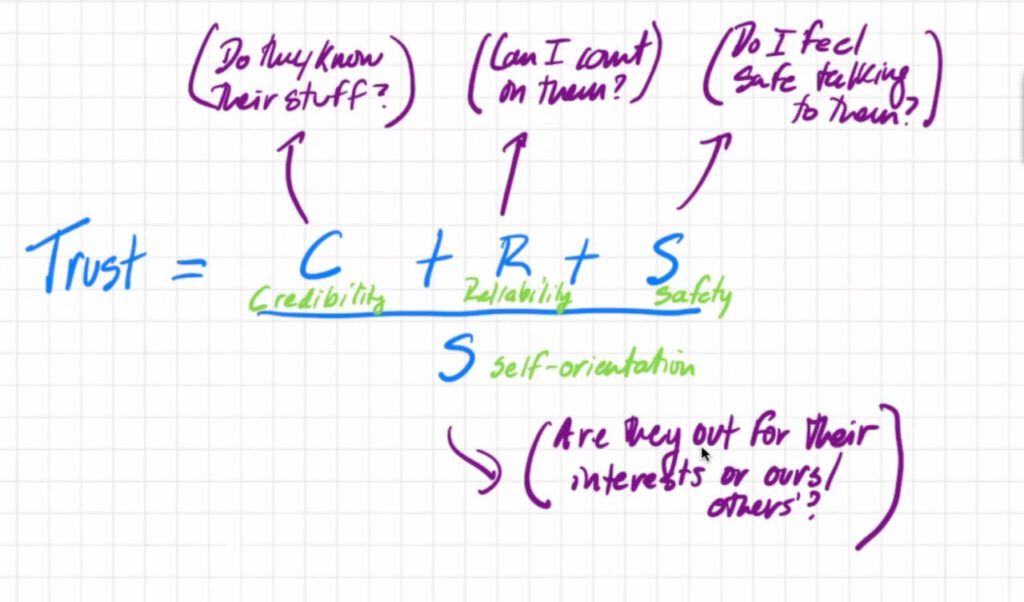 (Do they know
their stuff?)
(Can I count
on them?)
(Do I feel
safe talking
to them?)
Trust = C + R + S
Credibility Reliability Safety
S self-orientation
(Are they out for their
interests or ours/
others'?)